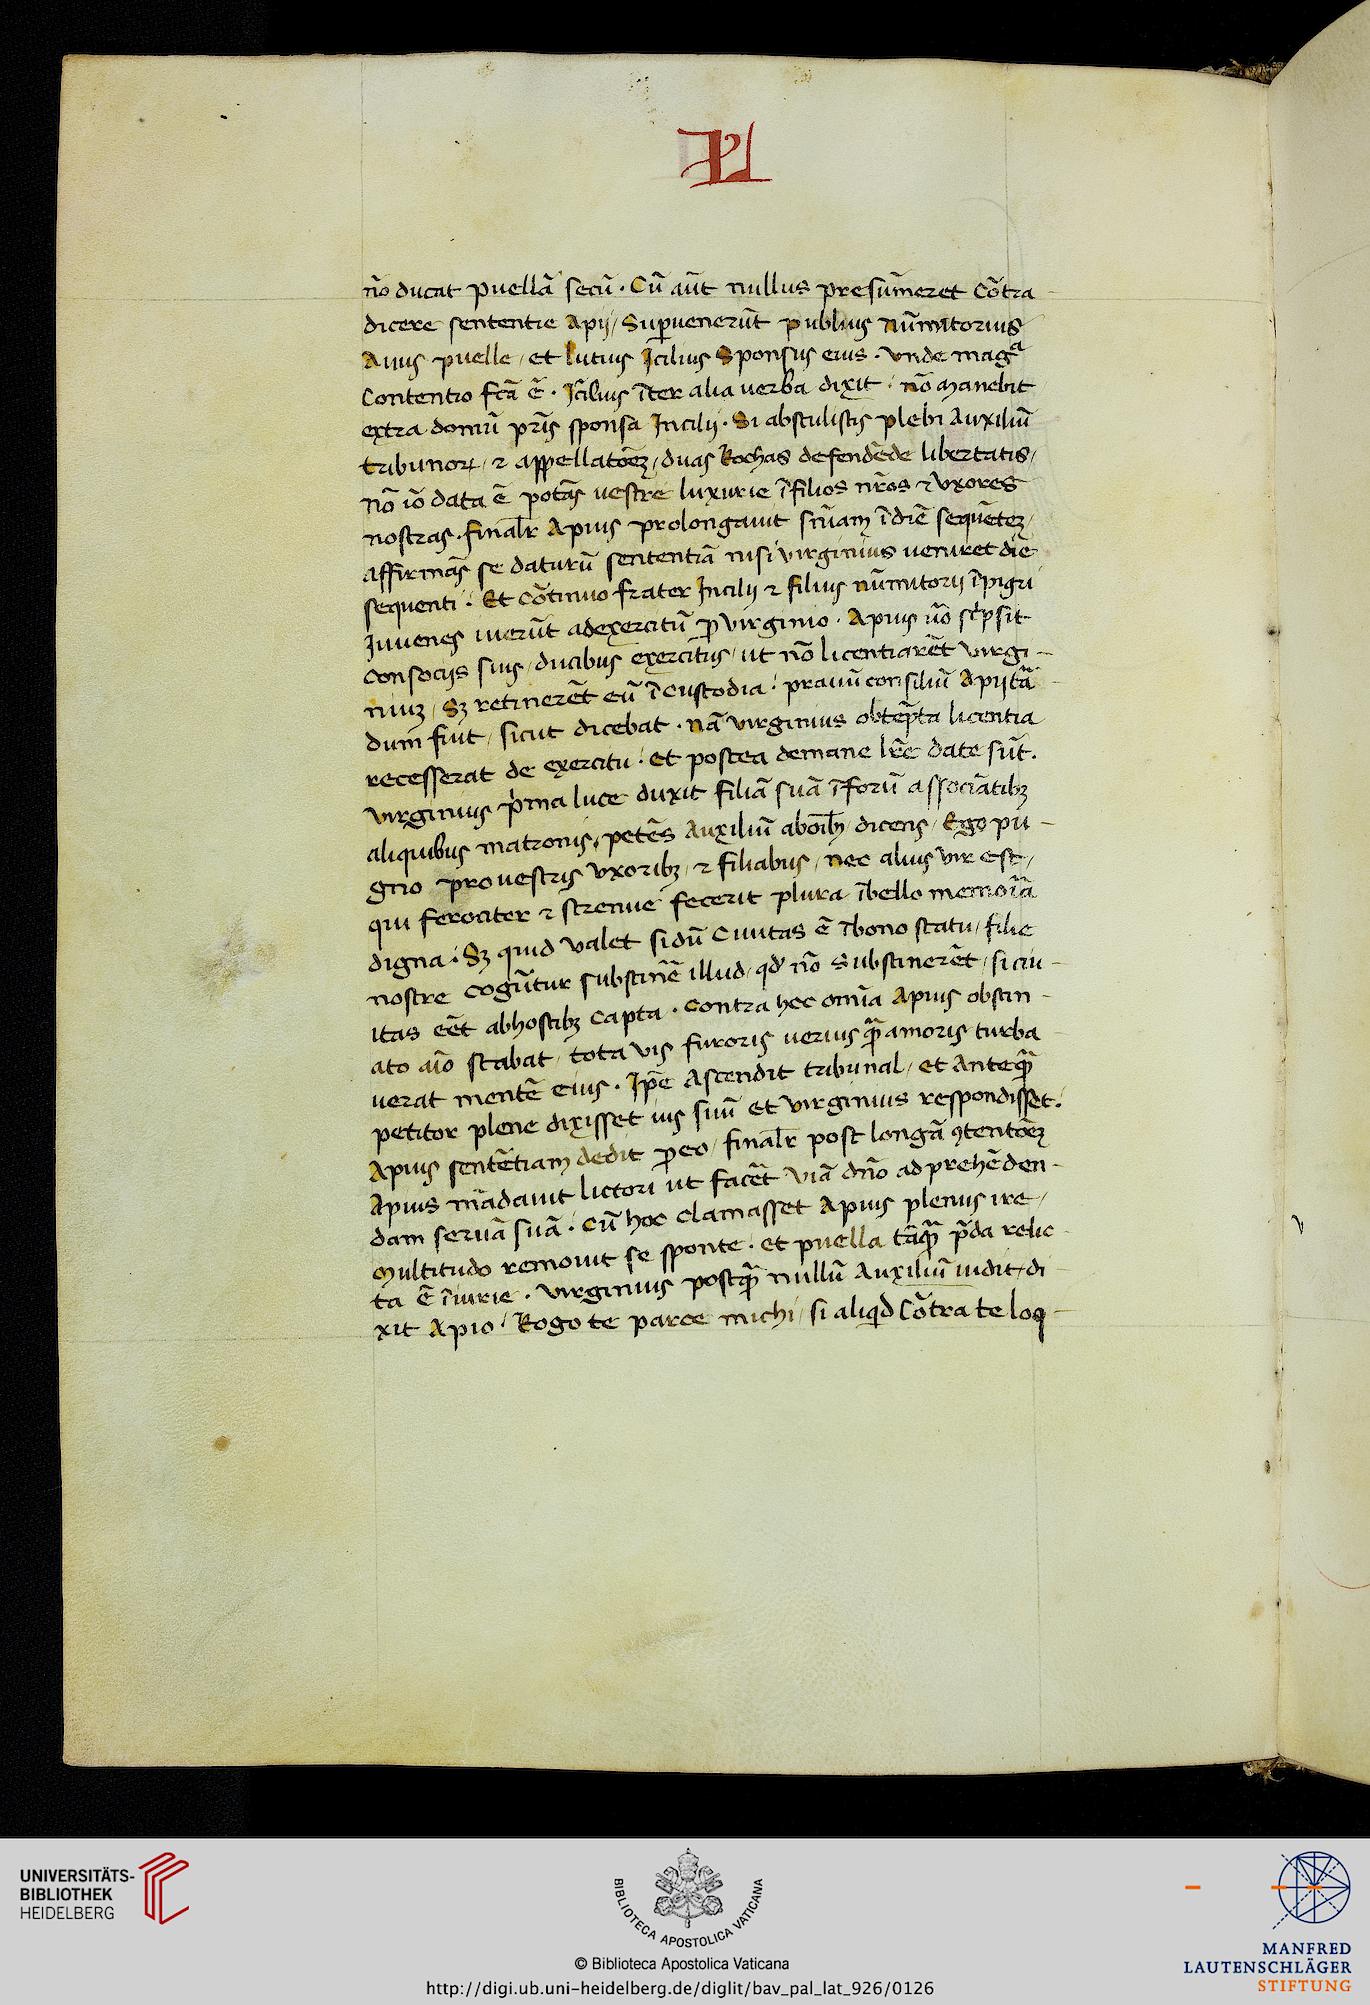 nō ducat puellā secū · Cū aūt nullus presūmeret Cōtra
dicere sententie Apij / Supervenerūt publius nūmitorius
Avus puelle / et lutius Icilius Sponsus eius · Vnde magᵃ
Contentio fcā ē · Icilius īter alia verba dixit · nō manebit
extra domū pr̄is sponsa Incilij · Si abstulistis plebi Auxiliū
tribunoꝝ / ⁊ appellatōeꝫ / duas Rochas defendēde libertatis /
nō iō data ē potās vestre luxurie ī filios nr̄os ⁊ Vxores
nostras · finalr̄ Apius prolongavit snīam ī diē sequēteꝫ /
affirmās se daturū sententiā nisi virginius veniret die
sequenti · Et Cōtinuo frater Incilij ⁊ filius nūmitorij īpigri
Iuvenes iverūt ad exercitū ꝓ Virginio · Apius v̄o scͥpsit
Consociis suis / ducibus exercitus / ut nō licentiarēt Virgi-
niuꝫ / Sꝫ retinerēt eū ī Custodia · pravū consiliū Apij tā
dum fuit / sicut dicebat · nā Virginius obtēpta licentia
recesserat de exercitu · et postea demane lr̄e date sūt ·
Virginius pͥma luce duxit filiā suā ī forū associātibꝫ
aliquibus matronis / petēs Auxiliū ab oībꝫ / dicens / Ego pu-
gno pro vestris Vxoribꝫ / ⁊ filiabus / nec alius vir est /
qui ferociter ⁊ strenue fecerit plura ī bello memoīa
digna · Sꝫ quid valet si dū Civitas ē ī bono statu / filie
nostre cogūtur substinē illud / qđ nō Substinerēt / si civ-
itas eēt ab hostibꝫ Capta · Contra hec omīa Apius obstin-
ato aīo stabat / tota vis furoris verius qᷓ amoris turba
verat mentē eius · Ip̄e Ascendit tribunal / et Anteqᷓ
petitor plene dixisset ius suū et Virginius respondisset ·
Apius sentētiam dedit ꝑ eo / finalr̄ post longā ꝯtentōeꝫ
Apius mādavit lictori ut facēt viā dn̄o ad prehēden-
dam servā suā · Cū hoc clamasset Apius plenus ire /
Multitudo removit se sponte · et puella tāqᷓ p̄da relic-
ta ē īiurie · Virginius postqᷓ nullū Auxiliū vidit / di-
xit Apio · Rogo te parce michi / si aliqͥd Cōtra te loq-
UNIVERSITÄTS-
BIBLIOTHEK
HEIDELBERG
BIBLIOTECA APOSTOLICA VATICANA
© Biblioteca Apostolica Vaticana
http://digi.ub.uni-heidelberg.de/diglit/bav_pal_lat_926/0126
MANFRED
LAUTENSCHLÄGER
STIFTUNG